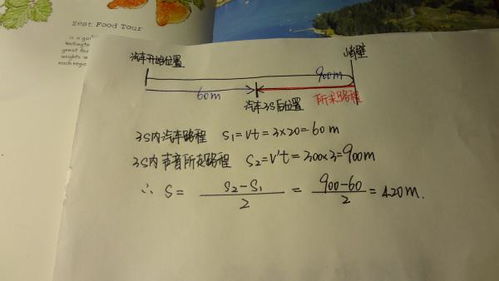 Zest Food Tour
汽车开始位置
峭壁
900m
60m
汽车3S后位置
所求路程
3S内汽车路程 S₁=vt=3×20=60m
3S内声音所走路程 S₂=v't=300×3=900m
∴ S= \frac{S₂-S₁}{2} = \frac{900-60}{2} = 420m.